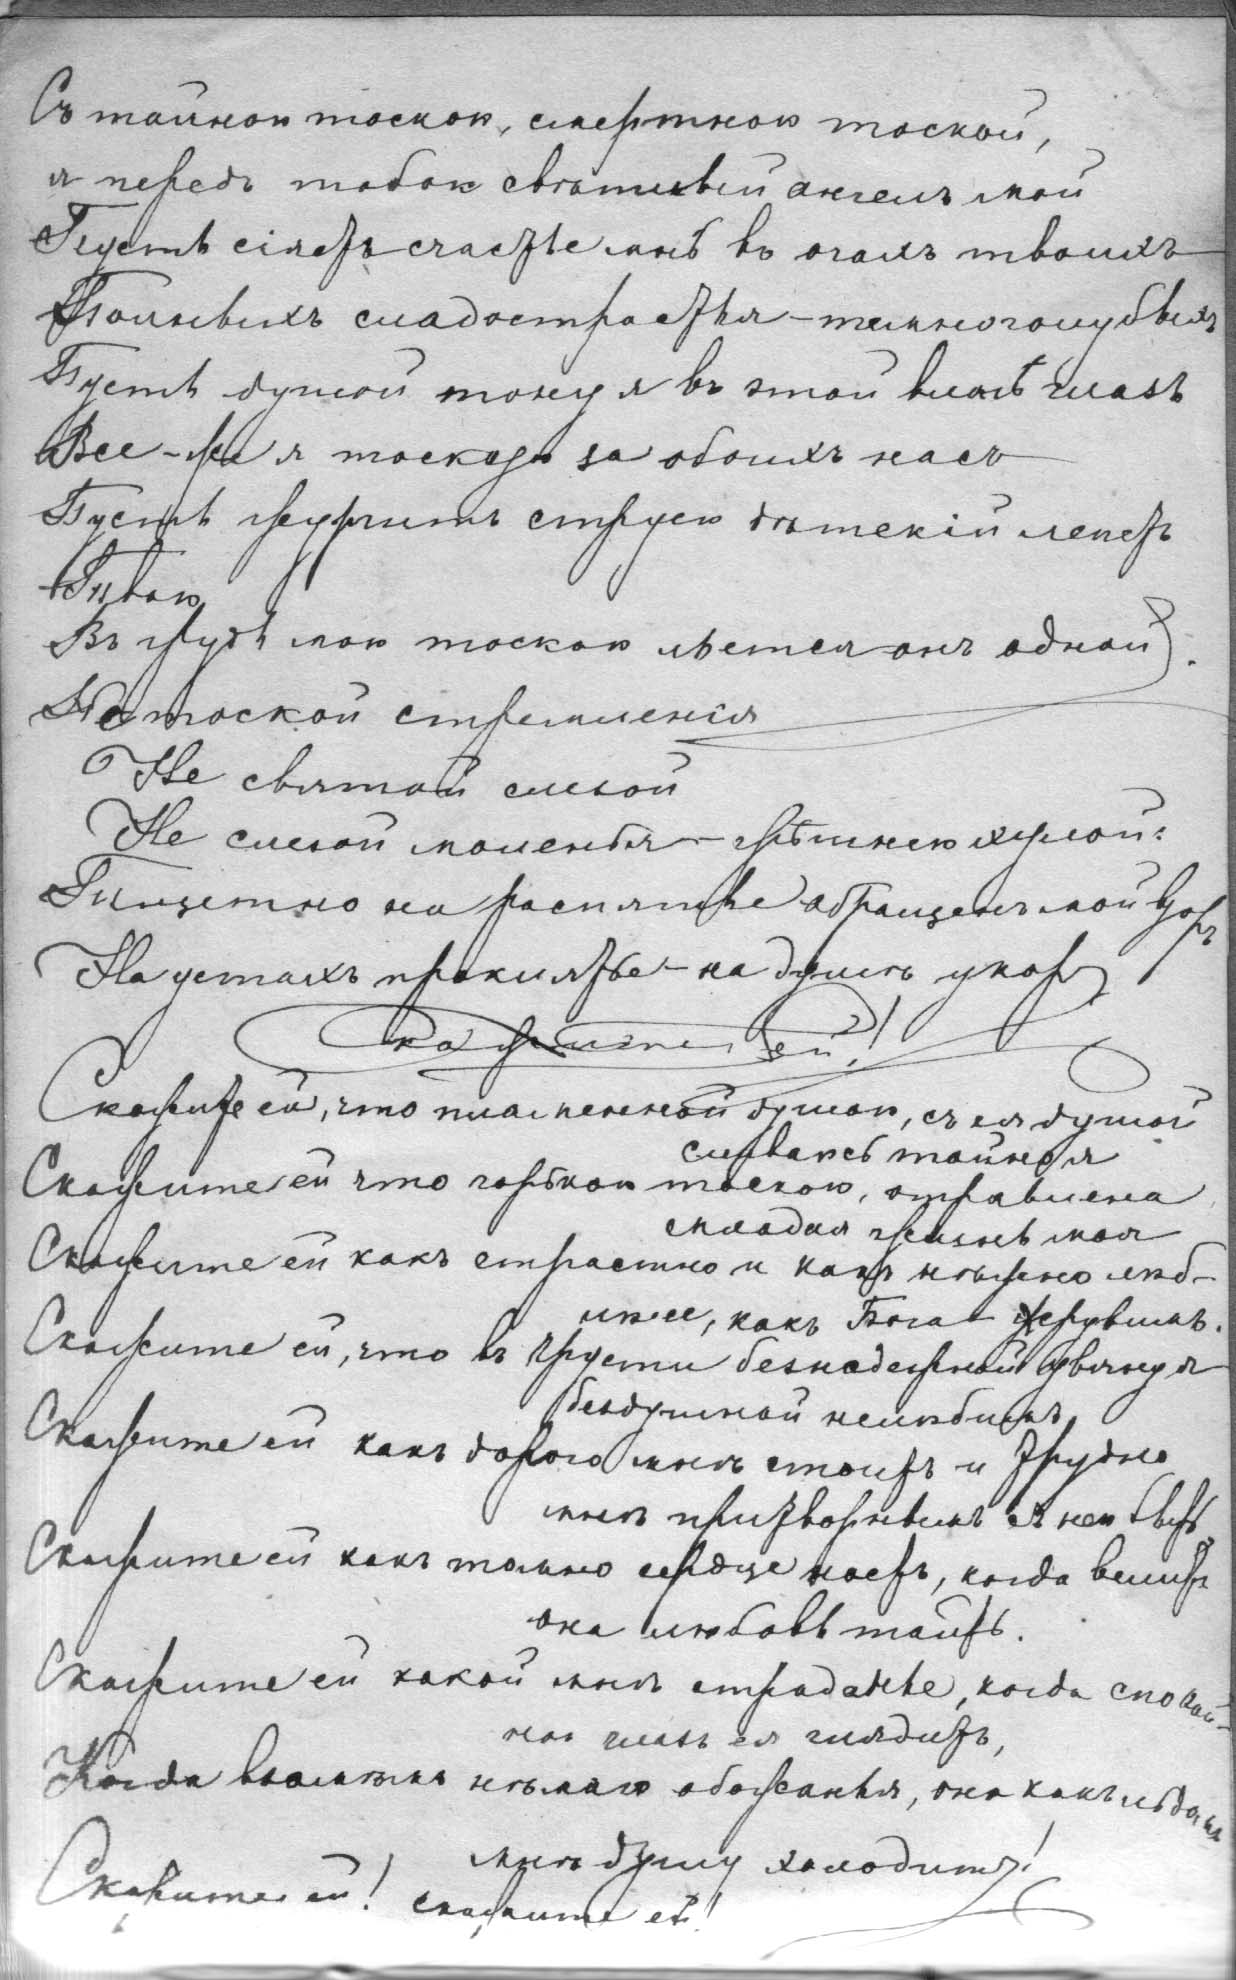 Съ тайною тоскою, смертною тоской,
я передъ тобою свѣтлый ангелъ мой
Пусть сіяетъ счастье мнѣ въ очахъ твоихъ
Полныхъ сладострастья – темноголубыхъ
Пусть душой тону я въ этой влагѣ глазъ
Все-же я тоскую за обоихъ насъ
Пусть журчитъ струею дѣтскій лепетъ
Твой
Въ грудь мою тоскою льется онъ одной.
Не тоской стремленія
Не святой слезой
Не слезой моленья – грѣшною хулой:
Тщетно на распятье обращенъ мой взоръ
На устахъ проклятье – на душѣ укоръ
Скажите ей!
Скажите ей, что пламенной душою, съ ея душой
сливаюсь тайно я
Скажите ей что горькою тоскою, отравлена
младая жизнь моя
Скажите ей какъ страстно и какъ нѣжно люб-
лю ее, какъ Бога херувимъ.
Скажите ей, что въ грусти безнадежной увяну я
бездушной нелюбимъ
Скажите ей какъ дорого мнѣ стоитъ и трудно
мнѣ притворнымъ съ нею быть
Скажите ей какъ только сердце ноетъ, когда велитъ
она любовь таить.
Скажите ей какой мнѣ страданье, когда спокой-
но глазъ ея глядитъ,
Когда нѣмаго обожанья, она какъ льдомъ
мнѣ душу холодитъ!
Скажите ей! скажите ей!